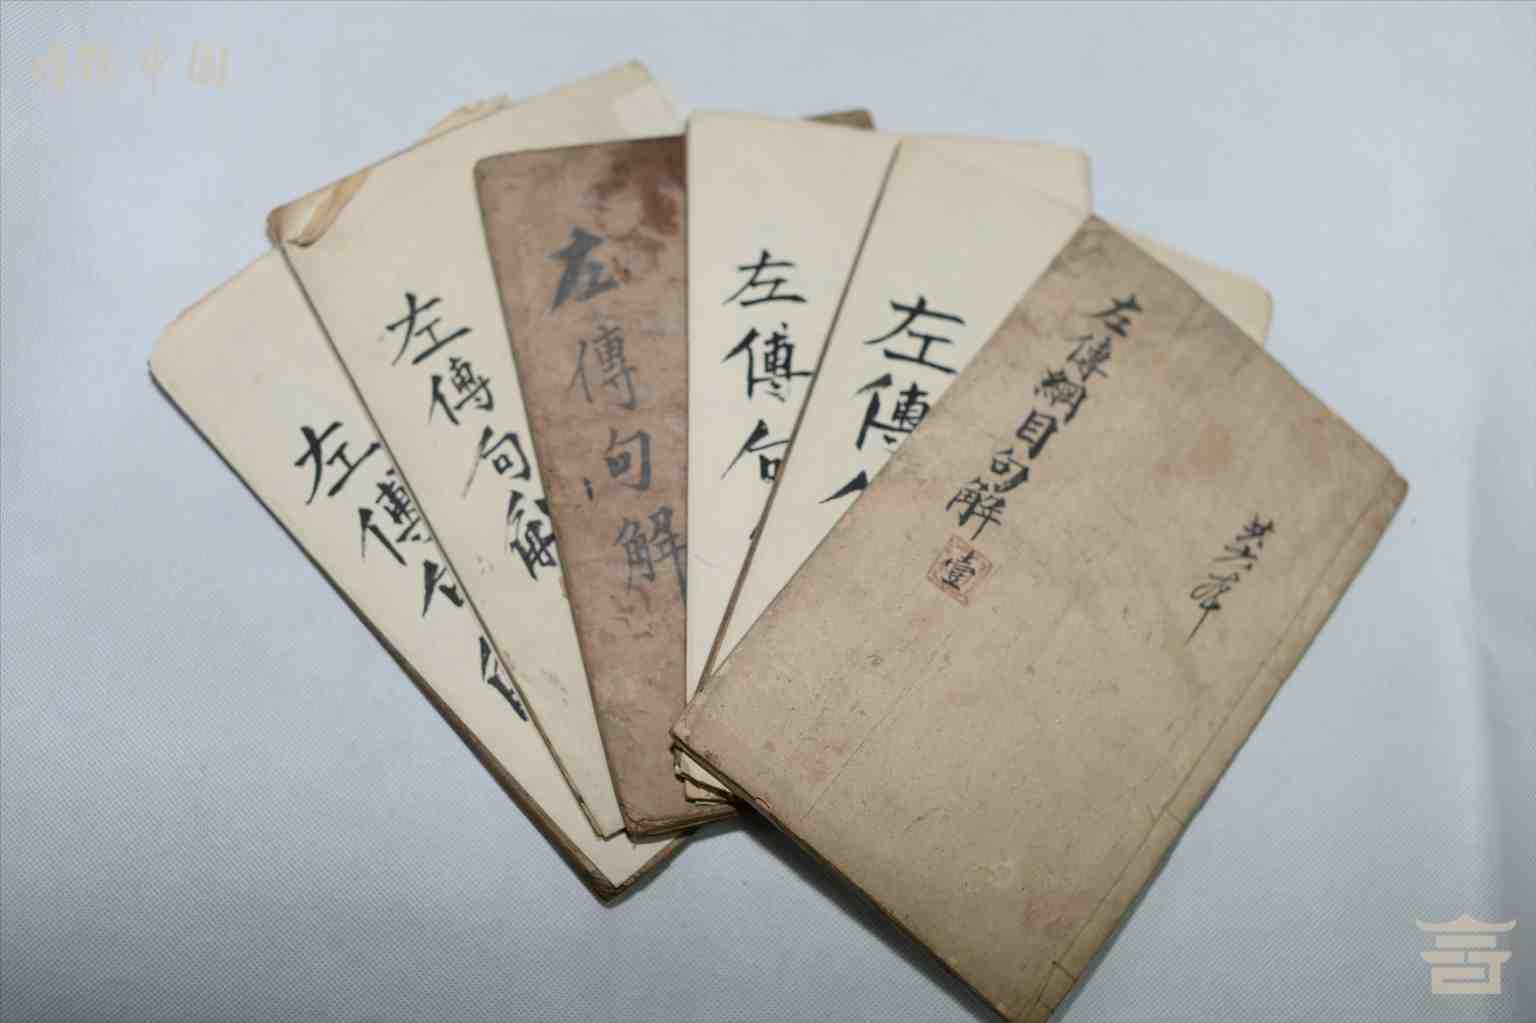 左傳句
左傳句解
左傳句解
左傳句
左傳
左傳綱目句解
壹
共六本